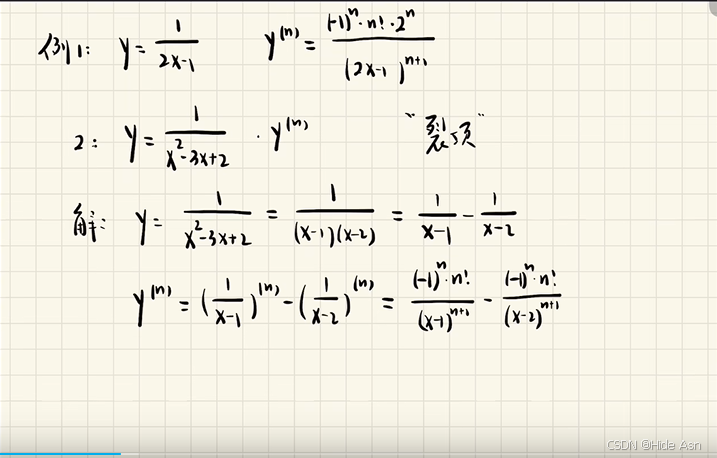 例1: y = 1/(2x-1)  y^(n) = ((-1)^n · n! · 2^n)/((2x-1)^(n+1))
2: y = 1/(x^2-3x+2) · y^(n)  "裂项"
解: y = 1/(x^2-3x+2) = 1/((x-1)(x-2)) = 1/(x-1) - 1/(x-2)
y^(n) = (1/(x-1))^(n) - (1/(x-2))^(n) = ((-1)^n · n!)/((x-1)^(n+1)) - ((-1)^n · n!)/((x-2)^(n+1))
CSDN @Hide Asn